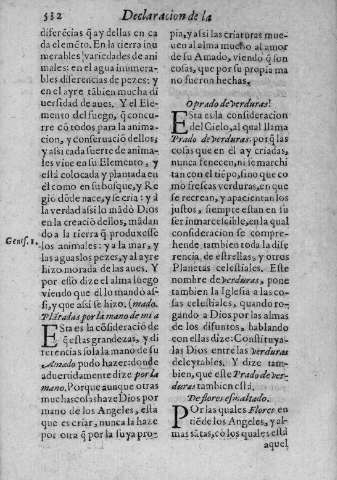 532 Declaracion de la
diferẽcias q̃ ay dellas en ca
da elemẽto. En la tierra inu
merables variedades de ani
males: en el agua inumera-
bles diferencias de pezes: y
en el ayre tãbien mucha di
uersidad de aues. Y el Ele-
mento del fuego, q̃ concu-
rre cõ todos para la anima-
cion, y conseruaciõ dellos;
y assi cada suerte de anima-
les viue en su Elemento, y
està colocada y plantada en
el como en su bosque, y Re
giõ dõde nace, y se cria: y a
la verdad assi lo mãdò Dios
en la creaciõ dellos, mãdan
do a la tierra q̃ produxesse
Genes. 1.
los animales: y a la mar, y
las aguas los pezes, y al ayre
hizo morada de las aues. Y
por esso dize el alma luego
viendo que el lo mandò as-
si, y que assi se hizo: (mado.
Plãtadas por la mano de mi a
Esta es la cõsideraciõ de
q̃ estas grandezas, y di
ferencias sola la mano de su
Amado pudo hazer: donde
aduertidamente dize por la
mano. Porque aunque otras
muchas cosas haze Dios por
mano de los Angeles, esta
que es criar, nunca la haze
por otra q̃ por la suya pro-
pia, y assi las criaturas mue-
uen al alma mucho al amor
de su Amado, viendo q̃ son
cosas, que por su propia ma
no fueron hechas.
O prado de verduras!
Esta es la consideracion
del Cielo, al qual llama
Prado de verduras, porq̃ las
cosas que en el ay criadas,
nunca fenecen, ni se marchi
tan con el tiẽpo, sino que co
mo frescas verduras, en que
se recrean, y apacientan los
justos, siempre estan en su
ser inmarcesible, en la qual
consideracion se compre-
hende tambien toda la dife
rencia de estrellas, y otros
Planetas celestiales. Este
nombre de verduras, pone
tambien la Iglesia a las co-
sas celestiales, quando ro-
gando a Dios por las almas
de los difuntos, hablando
con ellas dize: Constituya-
las Dios entre las verduras
deleytables. Y dize tam-
bien, que este Prado de ver-
duras tambien està.
De flores esmaltado.
Por las quales Flores en-
tiẽde los Angeles, y al-
mas sãtas, cõ los quales està
aquel